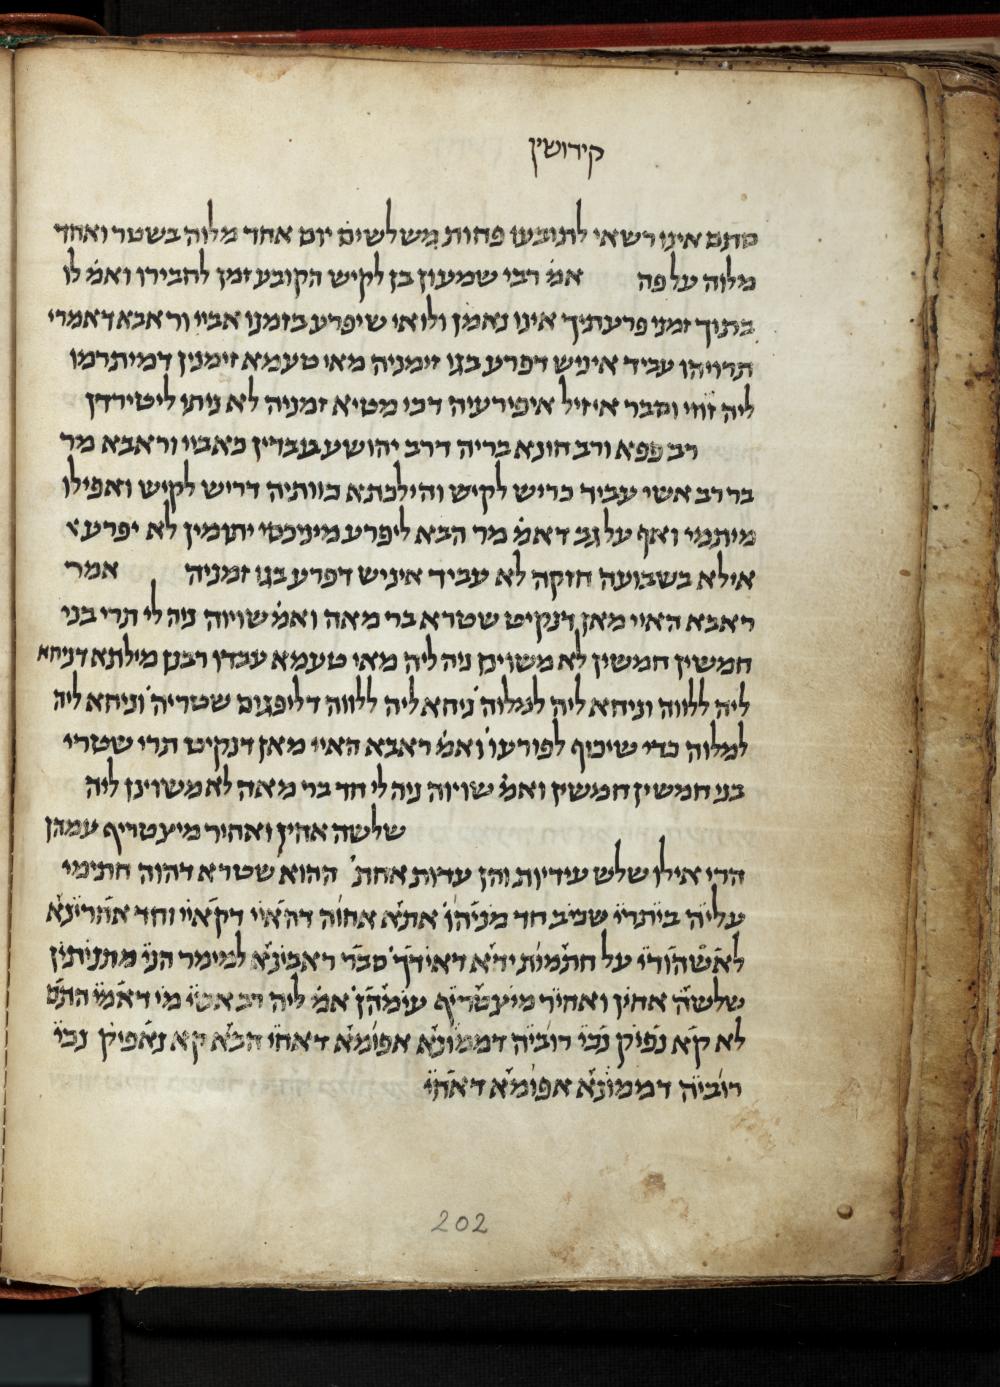 קידושין
סתם אינו רשאי לתובעו פחות משלשים יום אחד מלוה בשטר ואחד
מלוה על פה אמ֗ רבי שמעון בן לקיש הקובע זמן לחבירו ואמ֗ לו
בתוך זמני פרעתיך אינו נאמן ולואי שיפרע בזמנו אביי וראבא דאמרי
תרויהו עביד איניש דפרע בגו זימניה מאי טעמא זימנין דמיתרמו
ליה זוזי וסבר איזיל איפירעיה דכי מטיא זמניה לא ניתו ליטירדן
רב פפא ורב חונא בריה דרב יהושע עבדין כאביי וראבא מר
בר רב אשי עביד כריש לקיש והילכתא כוותיה דריש לקיש ואפילו
מיתמי ואף על גב דאמ֗ מר הבא ליפרע מיניכסי יתומין לא יפרע
אילא בשבועה חזקה לא עביד איניש דפרע בגו זמניה אמר
ראבא האיי מאן דנקיט שטרא בר מאה ואמ֗ שויוה ניה לי תרי בני
חמשין חמשין לא משוינן ניה ליה מאי טעמא עבדו רבנן מילתא דניחא
ליה ללווה וניחא ליה למלוה ניחא ליה ללווה דליפגום שטריה וניחא ליה
למלוה כדי שיכוף לפורעו ואמ֗ ראבא האיי מאן דנקיט תרי שטרי
בני חמשין חמשין ואמ֗ שויוה ניה לי חד בר מאה לא משוינן ליה
שלשה אחין ואחיר מיצטריף עמהן
הרי אילו שלש עידיות והן עדות אחת ההוא שטרא דהוה חתימי
עליה ביתרי שכיב חד מניהו אתא אחוה דהאיי דקאיי וחד אחרינא
לאשהודי על חתמות ידא דאידך סבר ראבינא למימר היני מתניתין
שלשה אחין ואחיר מיצטריף עימהן אמ֗ ליה רב אשי מי דאמי התם
לא קא נפיק נכי רוביה דממונא אפומא דאחי הכא קא נאפיק נכי
רוביה דממונא אפומא דאחי
202